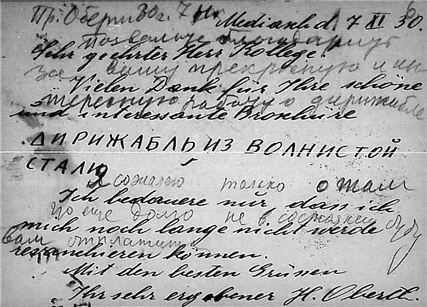 Пр. Оберт 30г. 7 Но
Mediasch d. 7 XI 30.
Позвольте благодарить
Sehr geehrter Herr Kollege!
за вашу прекрасную и ин
Vielen Dank für Ihre schöne
тересную работу о дирижабле
und interessante Broschüre
ДИРИЖАБЛЬ ИЗ ВОЛНИСТОЙ
СТАЛИ
Я сожалею только о том
Ich bedauere nur, dass ich
что еще долго не в состоянии буду
mich noch lange nicht werde
вам отплатить
revanchieren können.
Mit den besten Grüssen
Ihr sehr ergebener H. Oberth.